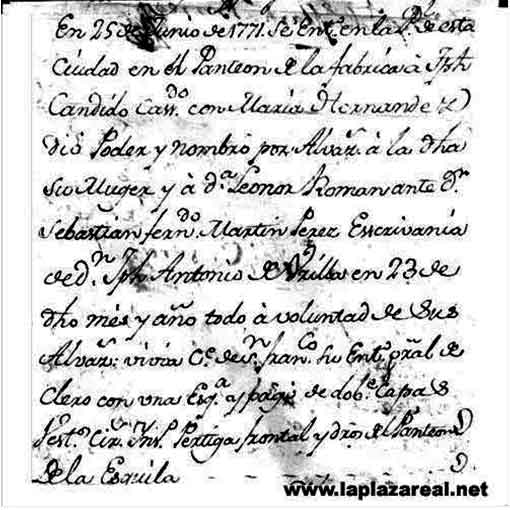 En 25 de Junio de 1771. Se Entº. en la Pª. de esta
Ciudad en el Panteon de la fabrica à Jph
Candido Cassdo. con Maria Hernandez
diò Poder y nombrò por Alvaz. à la dha
su Muger y à dª. Leonor Roman ante dn.
Sebastian ferndo. Martin Perez Escrivania
de dn. Jph Antonio de Urilla en 23 de
dho més y año todo à voluntad de sus
Alvaz: vivia Cº. de Sn. franco. su Entº. pral de
Clero con una Esqª. y pagò de dobº. Capas
Vestº. Cirº. Pertiga frontal y dros. del Panteon
De la Esquila
www.laplazareal.net